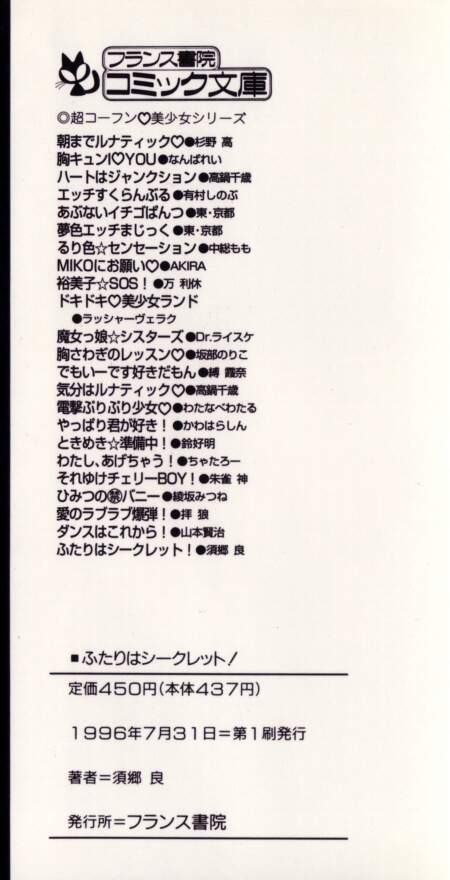 フランス書院
コミック文庫
◎超コーフン♡美少女シリーズ
朝までルナティック♡●杉野 高
胸キュンI♡YOU●なんばれい
ハートはジャンクション●高鍋千歳
エッチすくらんぶる●有村しのぶ
あぶないイチゴぱんつ●東・京都
夢色エッチまじっく●東・京都
るり色☆センセーション●中総もも
MIKOにお願い♡●AKIRA
裕美子☆SOS！●万 利休
ドキドキ♡美少女ランド
●ラッシャーヴェラク
魔女っ娘☆シスターズ●Dr.ライスケ
胸さわぎのレッスン♡●坂部のりこ
でもいーです好きだもん●縛 霞奈
気分はルナティック♡●高鍋千歳
電撃ぷりぷり少女♡●わたなべわたる
やっぱり君が好き！●かわはらしん
ときめき☆準備中！●鈴好明
わたし、あげちゃう！●ちゃたろー
それゆけチェリーBOY！●朱雀 神
ひみつの㊙バニー●綾坂みつね
愛のラブラブ爆弾！●拝 狼
ダンスはこれから！●山本賢治
ふたりはシークレット！●須郷 良
■ふたりはシークレット！
定価450円(本体437円)
1996年7月31日＝第1刷発行
著者＝須郷 良
発行所＝フランス書院